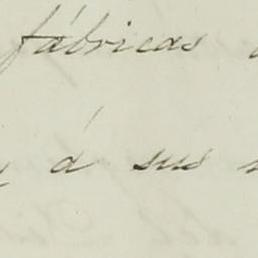 fábricas
á sus